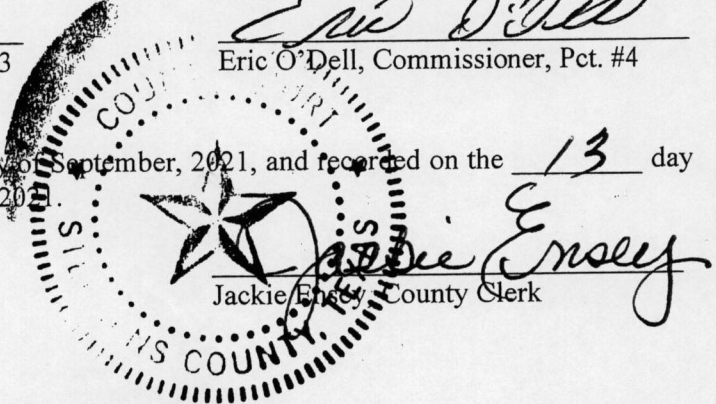 Eric O'Dell
3
Eric O'Dell, Commissioner, Pct. #4
of September, 2021, and recorded on the 13 day
2021.
Jackie Ensey
Jackie Ensey, County Clerk
NS COUNTY, TEXAS